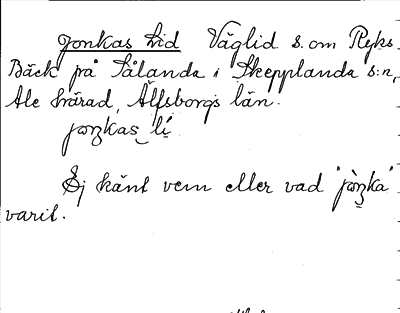 Jonkas lid Väglid s. om Ryks
Bäck på Sålanda i Skepplanda s:n,
Ale härad, Älfsborgs län.
jɔŋkas li
Ej känt vem eller vad "jɔŋka"
varit.